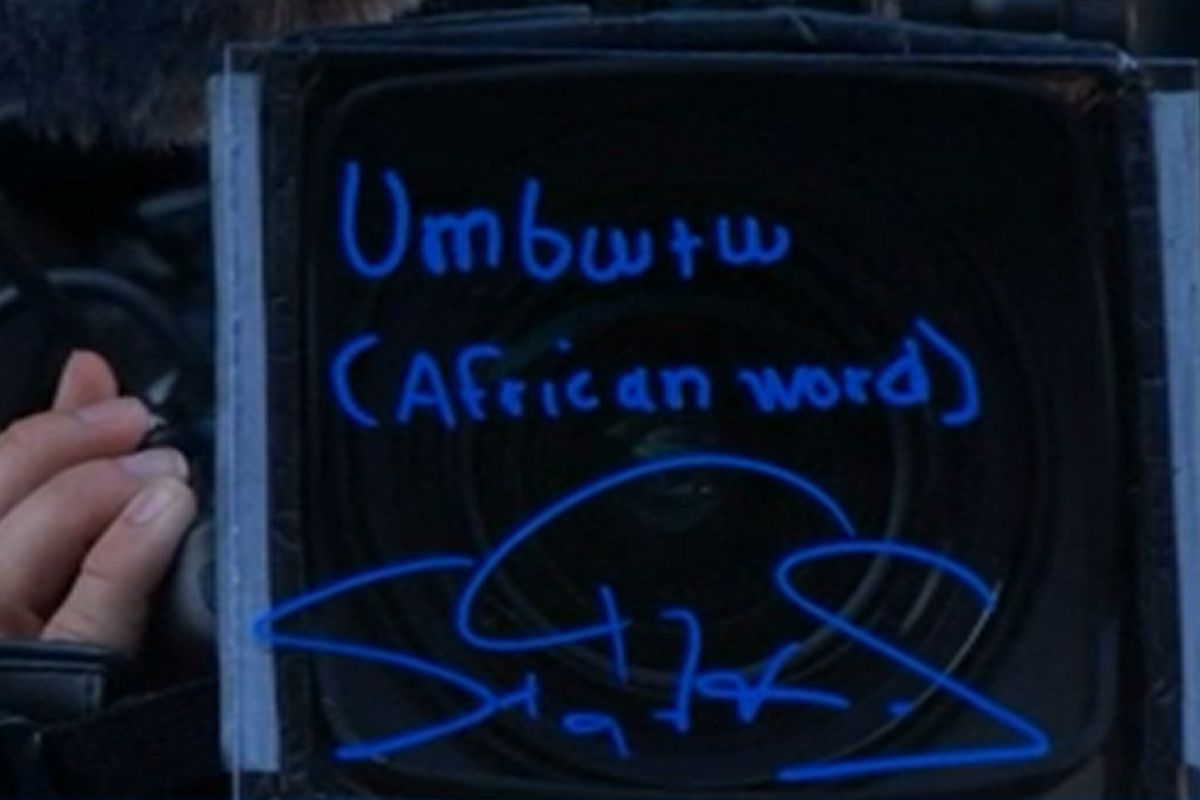 Umbutu
(African word)